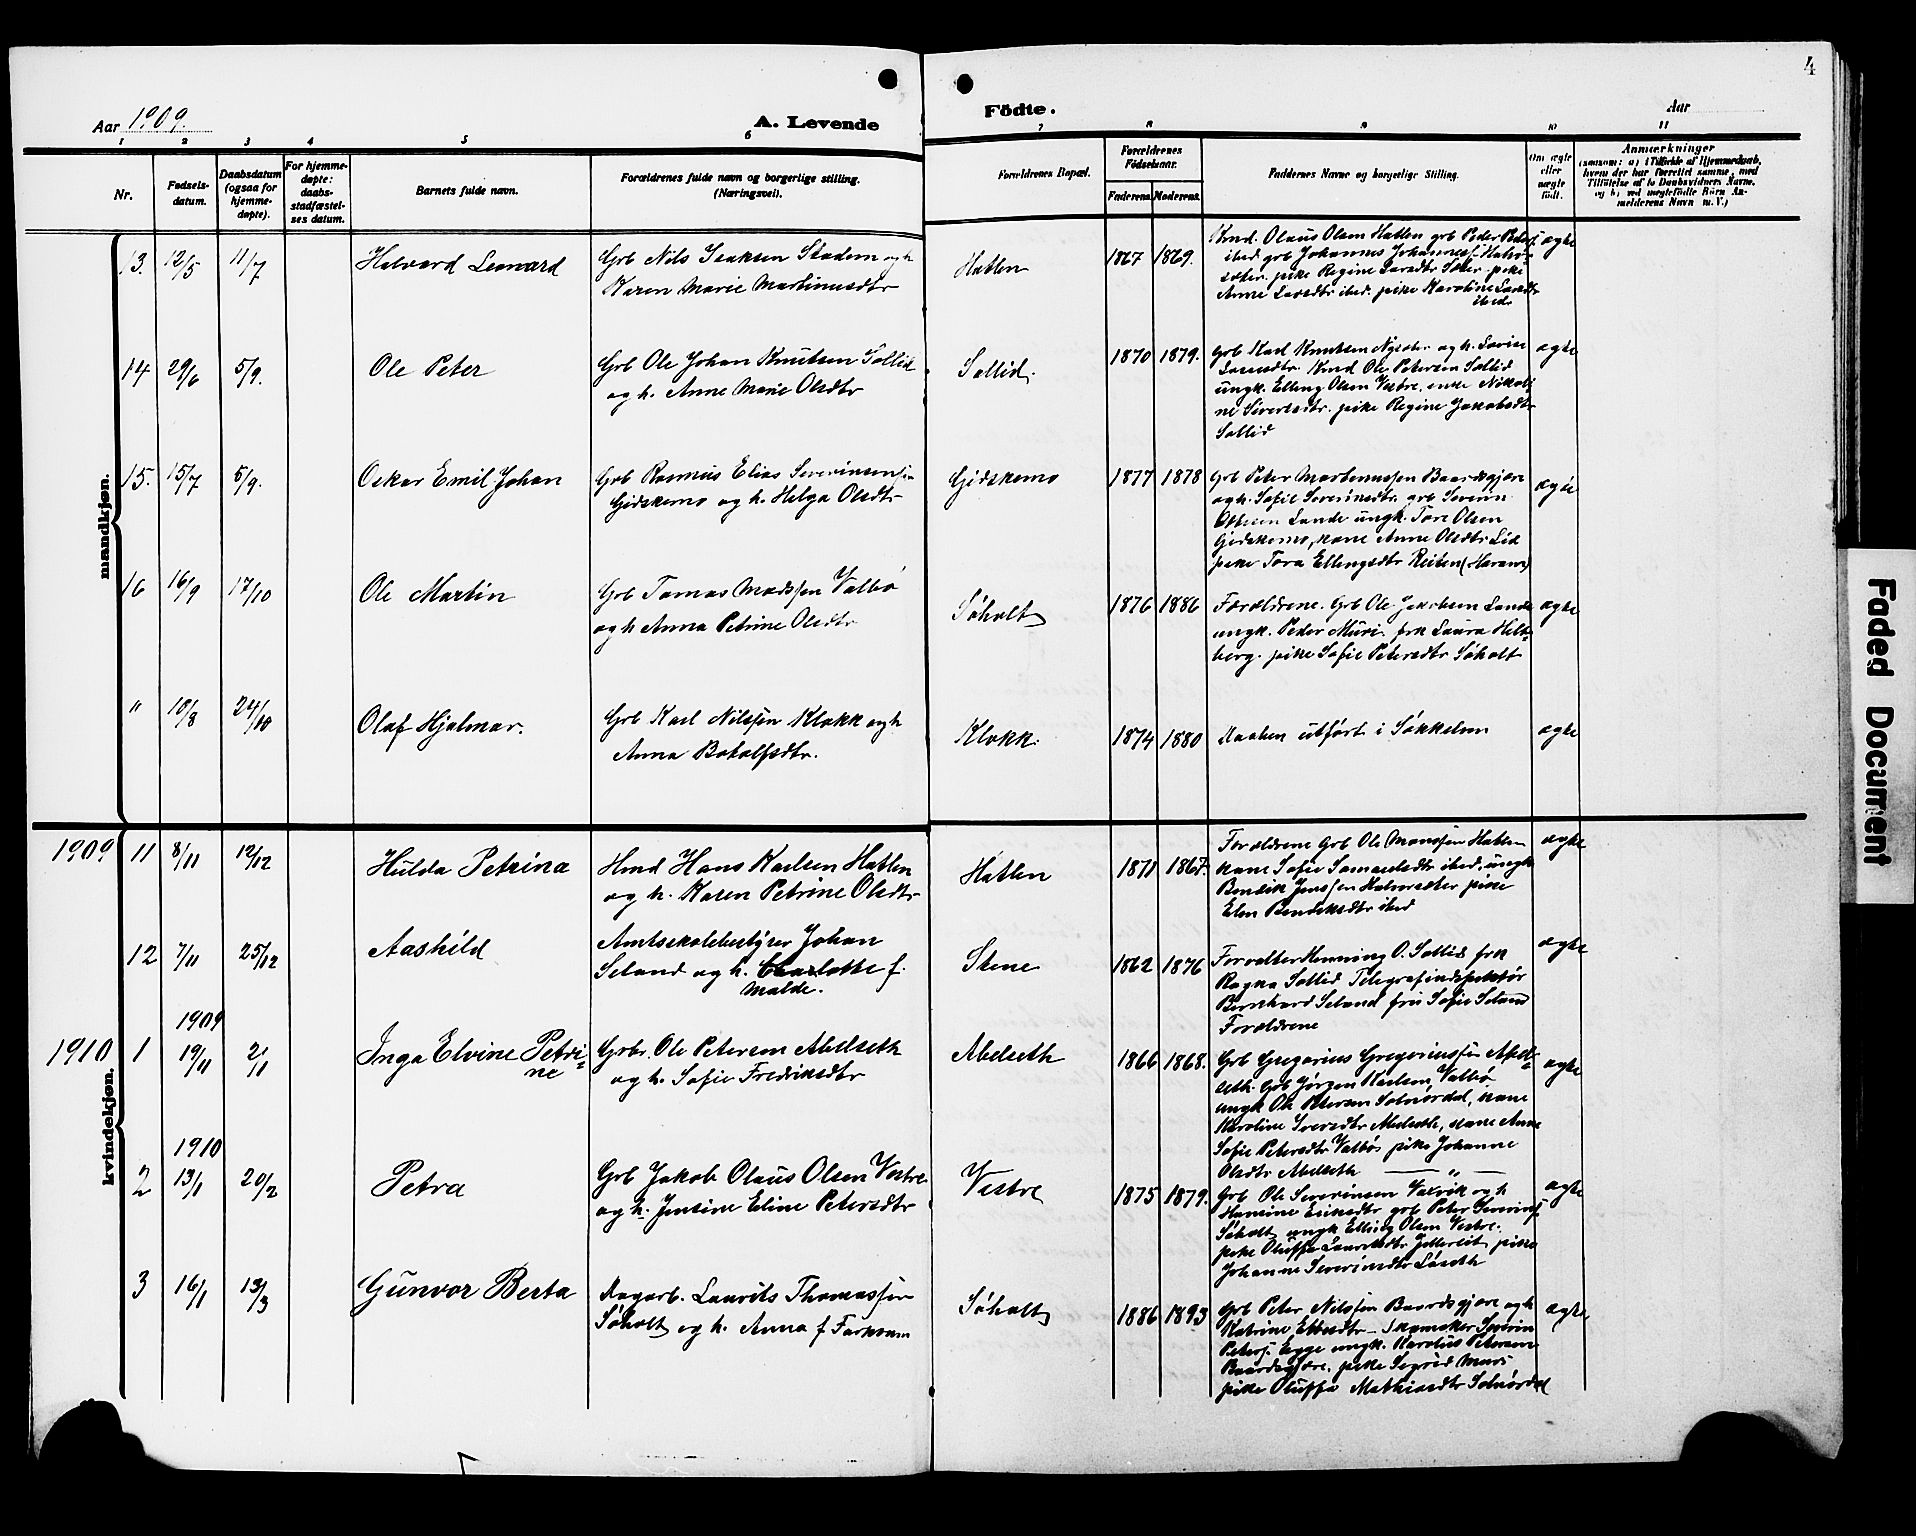 4
Aar 1909.
A. Levende
Födte.
Aar
1 2 3 4 5 6 7 8 9 10 11
Nr.
Fødsels-
datum.
Daabsdatum
(ogsaa for
hjemme-
døpte).
For hjemme-
døpte:
daabs-
stadfæstel-
ses datum.
Barnets fulde navn.
Forældrenes fulde navn og borgerlige stilling.
(Næringsvei).
Forældrenes Bopæl.
Forældrenes
Födselsaar.
Faderens Moderens
Faddernes Navne og borgerlige Stilling.
Om ægte
eller
uægte
født.
Anmærkninger
(saasom: a) i Tilfælde af Hjemmedaab,
hvem der har forrettet samme, med
Tilføielse af to Daabsvidners Navne,
og b) ved uægtefödte Börn An-
melderens Navn m. V.)
mandkjøn.
13. 12/5 11/7
Halvard Leonard
Grb Nils Isaksen Stadem og h
Karen Marie Martinusdtr
Hatlen
1867 1869.
Kmd. Olaus Olsen Hatlen grb Peder Peders.
ibed grb Johannes Johanness. Halvor-
sæter. pike Regine Larsdtr Sæter. pike
Anne Larsdtr ibed. pike Karoline Larsdtr
ibed
ægte
14 29/6 5/9.
Ole Peter
Grb Ole Johan Knutsen Sollid
og h. Anne Marie Olsdtr
Sollid.
1870 1879.
Grb Karl Knutsen Nysæter og h. Lovise
Larsdtr. Kmd Ole Petersen Sollid
ungk. Elling Olsen Vestre, enke Nikoli-
ne Sivertsdtr. pike Regine Jakobsdtr
Sollid
ægte
15. 15/7 5/9.
Oskar Emil Johan
Grb Rasmus Elias Severinsen
Gjidskemo og h. Helga Olsdtr
Gjidskemo
1877 1878
Grb Peter Martinussen Baardsgjære
og h. Sofie Severinsdtr. grb Severin
Ottesen Lande ungk. Tore Olsen
Gjedskemo, kone Anne Olsdtr Lid
pike Tora Ellingsdtr Reiten (Haram)
ægte
16 16/9 17/10
Ole Martin
Grb Tomas Madssen Valbö
og h Anna Petrine Olsdtr
Søholt
1876 1886
Forældrene. Grb Ole Jakobsen Lande
ungk. Peder Muri. frk Laura Helt-
berg. pike Sofie Petersdtr Søholt
ægte
" 10/8 24/10
Olaf Hjalmar.
Grb Karl Nilssen Klokk og h
Anna Botolfsdtr.
Klokk
1874 1880
Daaben utført i Søkkelven
ægte
kvindekjøn.
1909 11 8/11 12/12
Hulda Petrina
Hmd Hans Karlsen Hatlen
og h. Karen Petrine Olsdtr
Hatlen
1871 1867.
Forældrene Grb Ole Monssen Hatlen
kone Sofie Samuelsdtr ibed. ungk
Bendik Jenssen Halvorsæter pike
Elen Bendiksdtr ibed
ægte
12 7/11 25/12
Aashild
Amtsskolebestyrer Johan
Seland og h. Charlotte f.
Malde.
Stene
1862 1876
Forvalter Henning O. Sollid frk
Ragna Sollid Telegrafinspektør
Bernhard Seland fru Sofie Seland
Forældrene
ægte
1909
1910 1 19/11 2/1
Inga Elvine Petri-
ne
Grbr. Ole Petersen Abelseth
og h. Sofie Fredriksdtr
Abelseth
1866 1868.
Grb Gregorius Gregoriussen Apel-
seth. Grb Jørgen Karlsen Valbö
ungk Ole Petersen Solnørdal, kone
Karoline Iversdtr Abelseth, kone Anne
Sofie Petersdtr Valbö, pike Johanne
Olsdtr Abelseth — " —
ægte
1910
2 13/1 20/2
Petra
Grb Jakob Olaus Olsen Vestre
og h. Jensine Eline Petersdtr
Vestre
1875 1879.
Grb Ole Severinsen Vaxvik og h
Hansine Eriksdtr grb Peter Severins.
Søholt ungk Elling Olsen Vestre.
pike Oluffa Lauritsdtr Jelleslit, pike
Johanne Severinsdtr Landh
ægte
3 16/1 13/3
Gunvor Berta
Dagarb. Laurits Thomassen
Søholt og h. Anna f
Søholt
1886 1893
Grb Peter Nilssen Baardsgjære og h
Katrine Ellsdtr – Skomaker Severin
Peters. Egge ungk. Karolius Petersen
Baardsgjære, pike Sigrid Muri
pike Oluffa Mathiasdtr Solnørdal
ægte
Faded Document